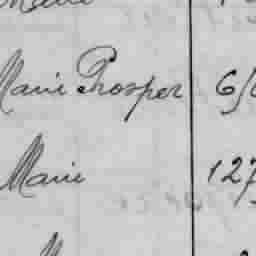 Marie Prosper 6/
Marie 127